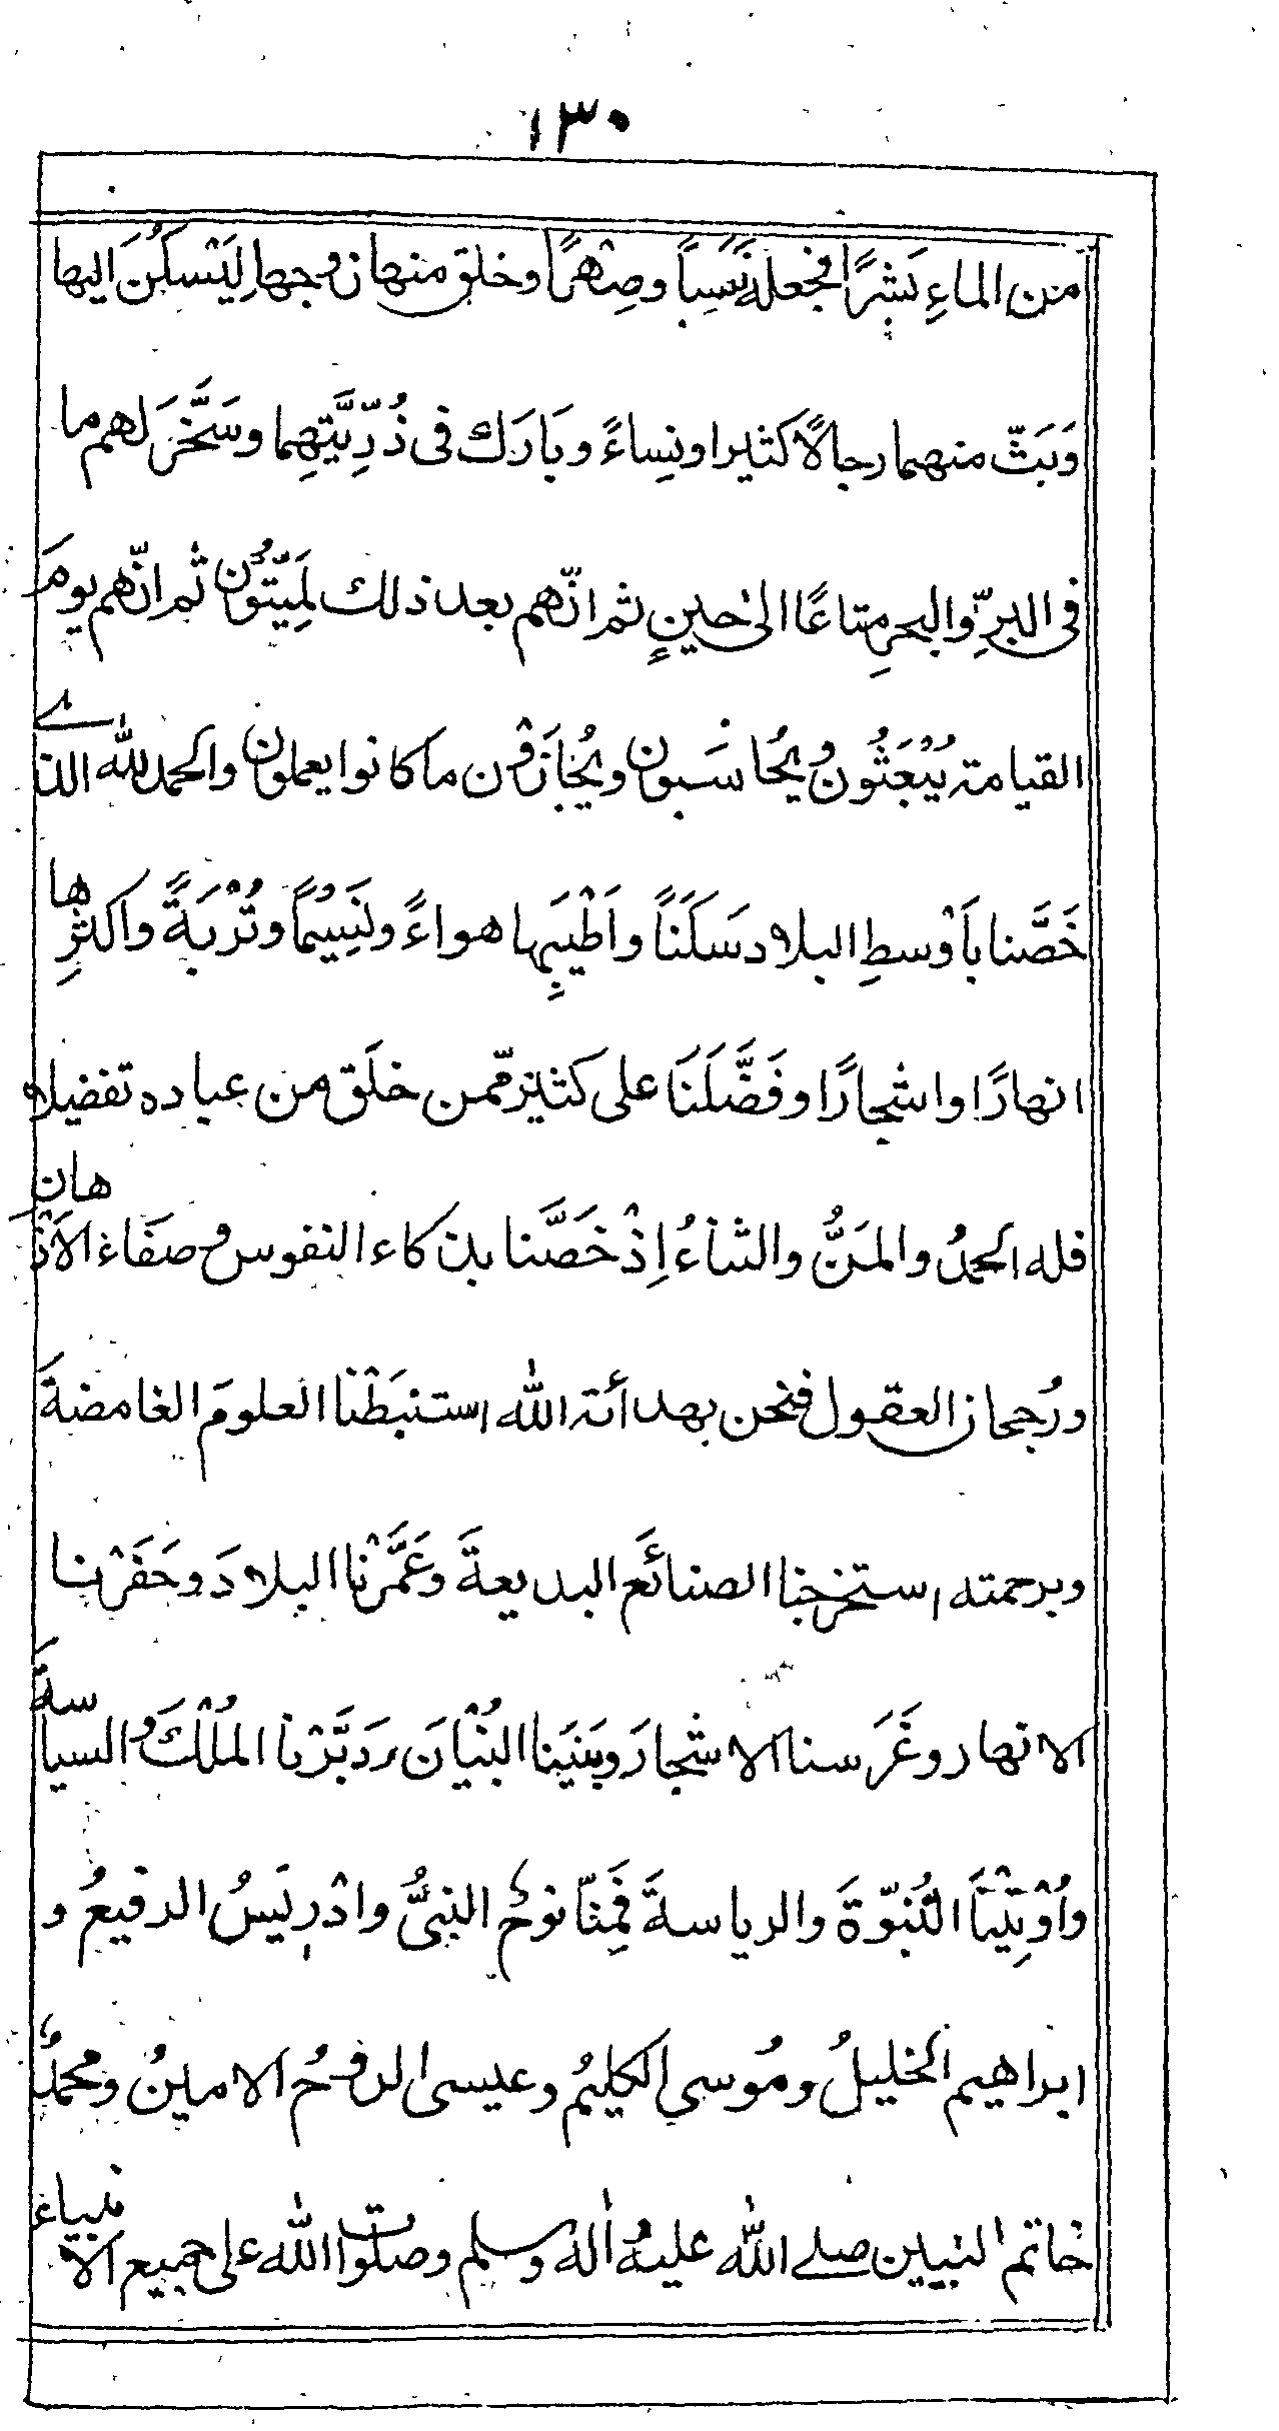 ١٣٠
من الماءِ بَشَرًا فجعلهٗ نَسَبًا وصِهْرًا وخلق منها زوجها لِيَسْكُنَ اليها
وَبَثّ منهما رجالًا كثيرا ونِساءً وبَارَك فى ذُرِّيَّتِهِما وسَخَّرَ لهم ما
فى البرِّ والبحرِ متاعًا الىٰ حينٍ ثم انّهم بعد ذلك لَمَيِّتُوْن ثم انّهم يومَ
القيامة يُبْعَثُون ويُحَاسَبون ويُجَازَوْن ما كانوا يعملون والحمد لله الذے
خَصَّنا بأَوْسطِ البلاد سَكَنًا واَطْيَبِها هواءً ونَسِيْمًا وتُرْبَةً واكثرِها
انهارًا واشجارًا وفَضَّلَنَا على كثيرٍ ممّن خلَق من عباده تفضيلا
فله الحمدُ والمَنُّ والثناءُ اِذْ خَصَّنا بذكاء النفوس وصفَاءِ الاَذْهانِ
ورُجحان العقول فنحن بهدأية الله استنبَطْنا العلومَ الغامضةَ
وبرحمته استخرجنا الصنائَع البديعةَ وعَمَّرْنا البلادَ وحَفَرْنا
الانهار وغَرَسنا الاشجارَ وبَنَيَنا البُنْيَانَ ودَبَّرْنا المُلْكَ والسياسةَ
واُوْتِيْنَا النُّبوّةَ والرياسةَ فَمِنّا نوحٌ النبىُّ وادْرِيَسُ الرفيعُ و
ابراهيم الخليلُ ومُوسى الكليمُ وعيسى الروحُ الامينُ ومحمدٌ
خاتم النبيين صلے الله عليه وآله وسلم وصلوات الله على جميع الانبياءِ